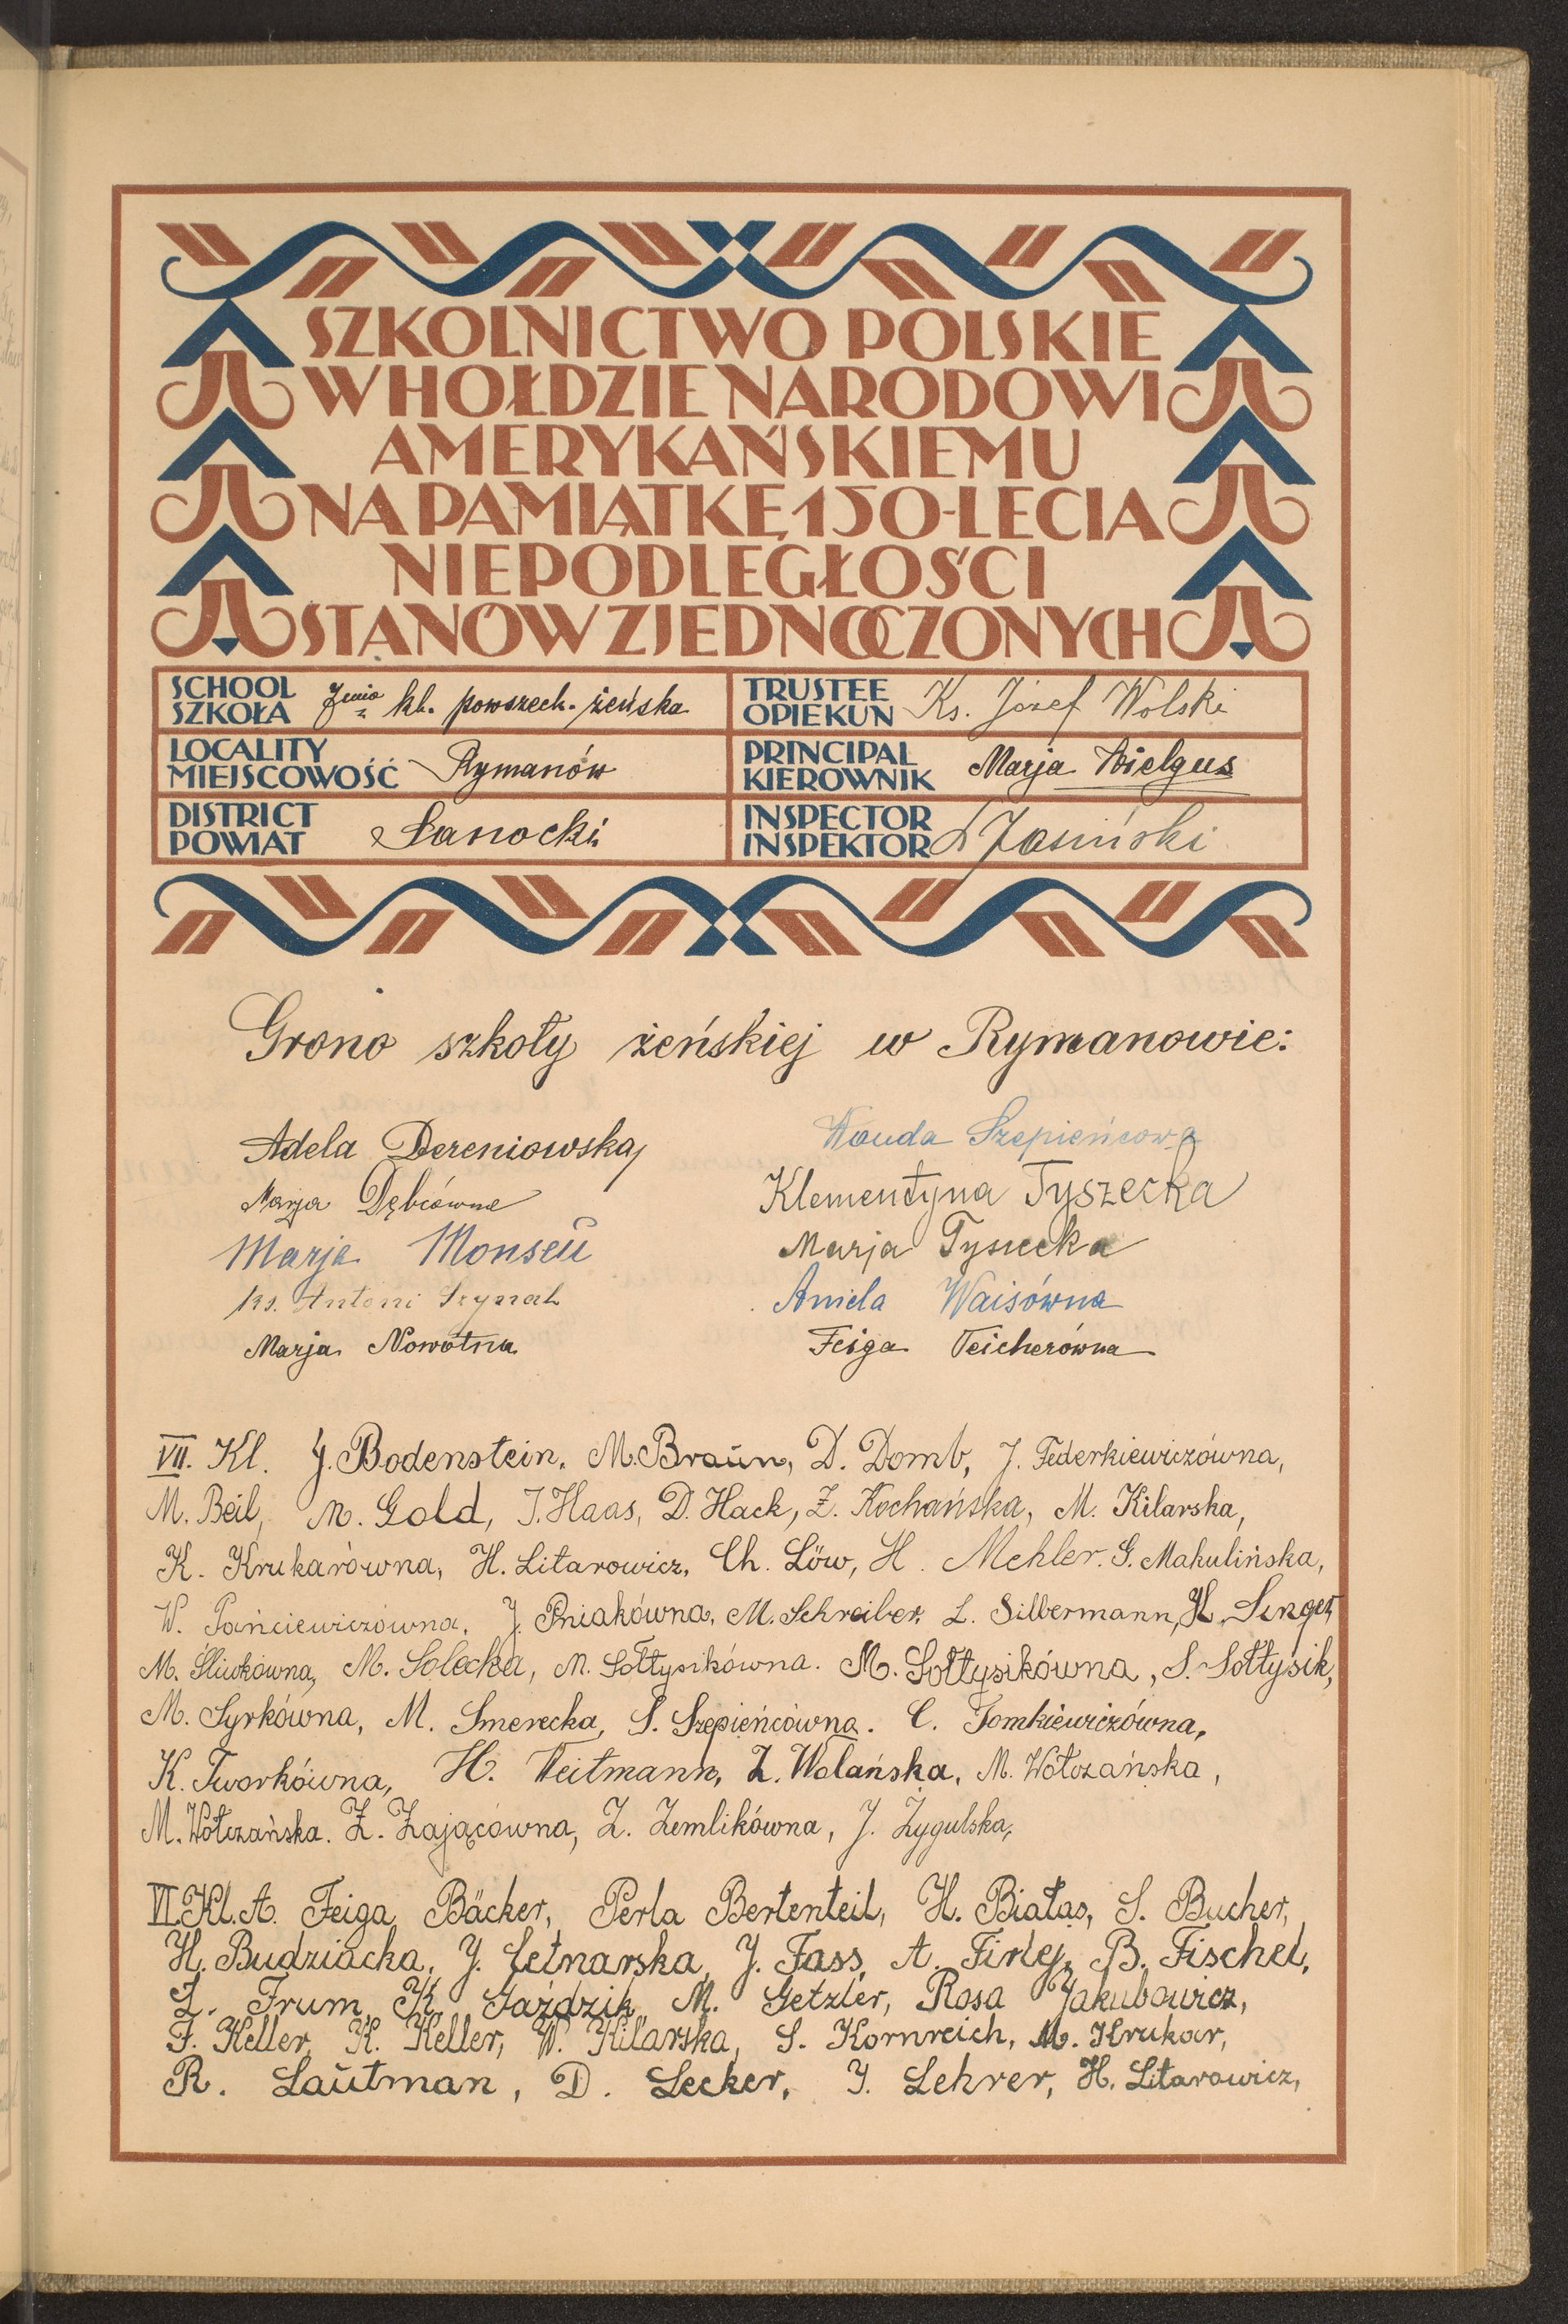 SZKOLNICTWO POLSKIE
W HOŁDZIE NARODOWI
AMERYKAŃSKIEMU
NA PAMIĄTKĘ 150-LECIA
NIEPODLEGŁOŚCI
STANÓW ZJEDNOCZONYCH
SCHOOL
SZKOŁA 7mio kl. powszech. żeńska
TRUSTEE
OPIEKUN Ks. Józef Wolski
LOCALITY
MIEJSCOWOŚĆ Rymanów
PRINCIPAL
KIEROWNIK Marja Wielgus
DISTRICT
POWIAT Sanocki
INSPECTOR
INSPEKTOR Jasiński
Grono szkoły żeńskiej w Rymanowie:
Adela Dereniowska,
Wanda Szepieńcowa
Marja Dębiówna
Klementyna Tyszecka
Marja Monseu
Marja Tysiecka
ks. Antoni Szynal
Aniela Waisówna
Marja Nowotna
Feiga Teicherówna
VII. Kl. J. Bodenstein, M. Braun, D. Domb, J. Federkiewiczówna,
M. Beil, M. Gold, J. Haas, D. Hack, Z. Kochańska, M. Kilarska,
K. Krukarówna, H. Litarowicz, Ch. Löw, H. Mehler. G. Makulińska,
W. Pańciewiczówna, J. Pniakówna, M. Schreiber, L. Silbermann, H. Singer,
M. Śliwkówna, M. Solecka, M. Sołtysikówna. M. Sołtysikówna, S. Sołtysik,
M. Syrkówna, M. Smerecka, S. Szepieńcówna. C. Tomkiewiczówna,
K. Tworkówna, H. Weitmann, Z. Wolańska, M. Wołczańska,
M. Wołczańska. Z. Zającówna, Z. Zemlikówna, J. Zygulska,
VI. Kl. A. Feiga Bäcker, Perla Bertenteil, H. Białas, S. Bucher,
H. Budziacka, J. Cetnarska, J. Fass, A. Firlej, B. Fischel,
L. Frum, K. Gaździk, M. Getzler, Rosa Jakubowicz,
F. Keller, K. Keller, W. Kilarska, S. Kornreich, M. Krukar,
R. Lautman, D. Lecker, J. Lehrer, H. Litarowicz,